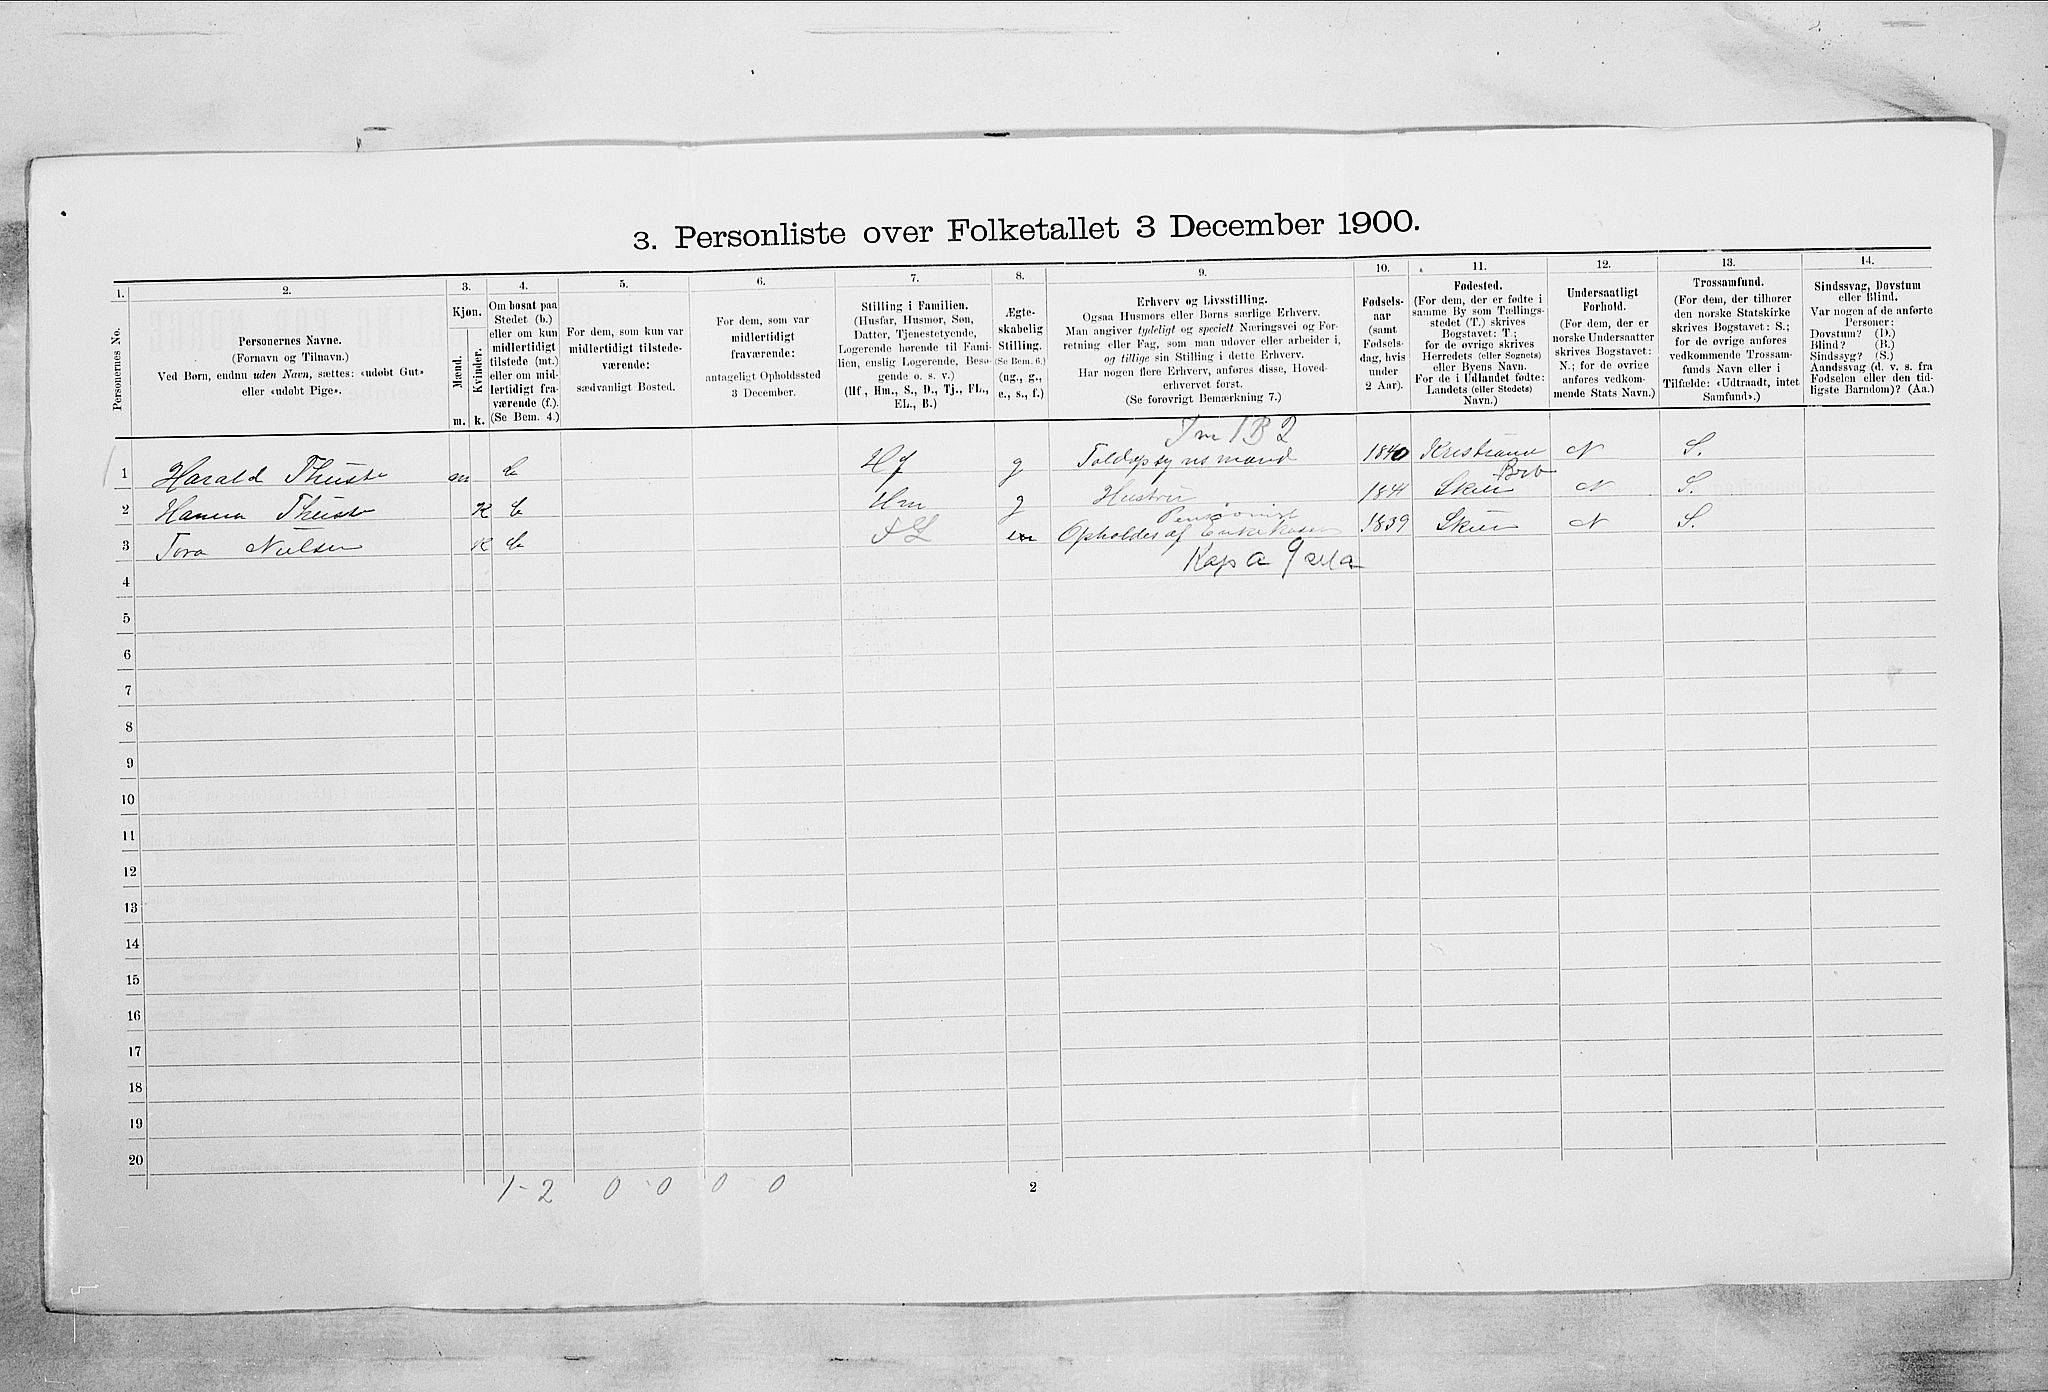 3. Personliste over Folketallet 3 December 1900.
1. 2. 3. 4. 5. 6. 7. 8. 9. 10. 11. 12. 13. 14.
Personernes No.
Personernes Navne.
(Fornavn og Tilnavn.)
Ved Børn, endnu uden Navn, sættes: «udøbt Gut»
eller «udøbt Pige».
Kjøn.
Mænd.
Kvinder.
m. k.
Om bosat paa
Stedet (b.)
eller om kun
midlertidigt
tilstede (mt.)
eller om mid-
lertidigt fra-
værende (f.).
(Se Bem. 4.)
For dem, som kun var
midlertidigt tilstede-
værende:
sædvanligt Bosted.
For dem, som var
midlertidigt
fraværende:
antageligt Opholdssted
3 December.
Stilling i Familien.
(Husfar, Husmor, Søn,
Datter, Tjenestetyende,
Logerende hørende til Fami-
lien, enslig Logerende, Besø-
gende o. s. v.)
(Hf, Hm., S., D., Tj., FL.,
EL., B.)
Ægte-
skabelig
Stilling.
(Se Bem. 6.)
(ug., g.,
e., s., f.)
Erhverv og Livsstilling.
Ogsaa Husmors eller Børns særlige Erhverv.
Man angiver tydeligt og specielt Næringsvei og For-
retning eller Fag, som man udøver eller arbeider i,
og tillige sin Stilling i dette Erhverv.
Har nogen flere Erhverv, anføres disse, Hoved-
erhvervet først.
(Se forøvrigt Bemærkning 7.)
Fødsels-
aar
(samt
Fødsels-
dag, hvis
under
2 Aar).
Fødested.
(For dem, der er fødte i
samme By som Tællings-
stedet (T.) skrives
Bogstavet: T.;
for de øvrige skrives
Herredets (eller Sognets)
eller Byens Navn.
For de i Udlandet fødte:
Landets (eller Stedets)
Navn.)
Undersaatligt
Forhold.
(For dem, der er
norske Undersaatter
skrives Bogstavet:
N.; for de øvrige
anføres vedkom-
mende Stats Navn.)
Trossamfund.
(For dem, der tilhører
den norske Statskirke
skrives Bogstavet: S.;
for de øvrige anføres
vedkommende Trossam-
funds Navn eller i
Tilfælde: «Udtraadt, intet
Samfund».)
Sindssvag, Døvstum
eller Blind.
Var nogen af de anførte
Personer:
Døvstum? (D.)
Blind? (B.)
Sindssyg? (S.)
Aandssvag (d. v. s. fra
Fødselen eller den tid-
ligste Barndom)? (Aa.)
1 Harald Thuste m b Hf g Toldopsynsmand 1840 Kristiania N S.
2 Hanna Thuste K b Hm g Hustru 1841 Skien N S.
Pensionist
3 Tora Nielsen K b FL e Opholdes af Enkekasse 1839 Skien N S.
4
5
6
7
8
9
10
11
12
13
14
15
16
17
18
19
20
1-2 0-0 0-0
2